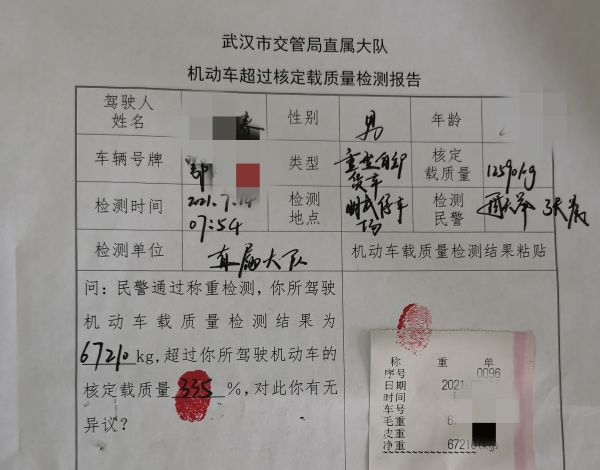 武汉市交管局直属大队
机动车超过核定载质量检测报告
驾驶人姓名 性别 男 年龄
车辆号牌 鄂 类型 重型自卸货车 核定载质量 12590kg
检测时间 2021.7.14 07:54 检测地点 停车场 检测民警
检测单位 直属大队 机动车载质量检测结果粘贴
问：民警通过称重检测，你所驾驶
机动车载质量检测结果为
67210kg,超过你所驾驶机动车的
核定载质量 335 %,对此你有无
异议？
称 重 单
序号 0096
日期 2021
时间
车号
毛重 6
皮重
净重 67210(kg)